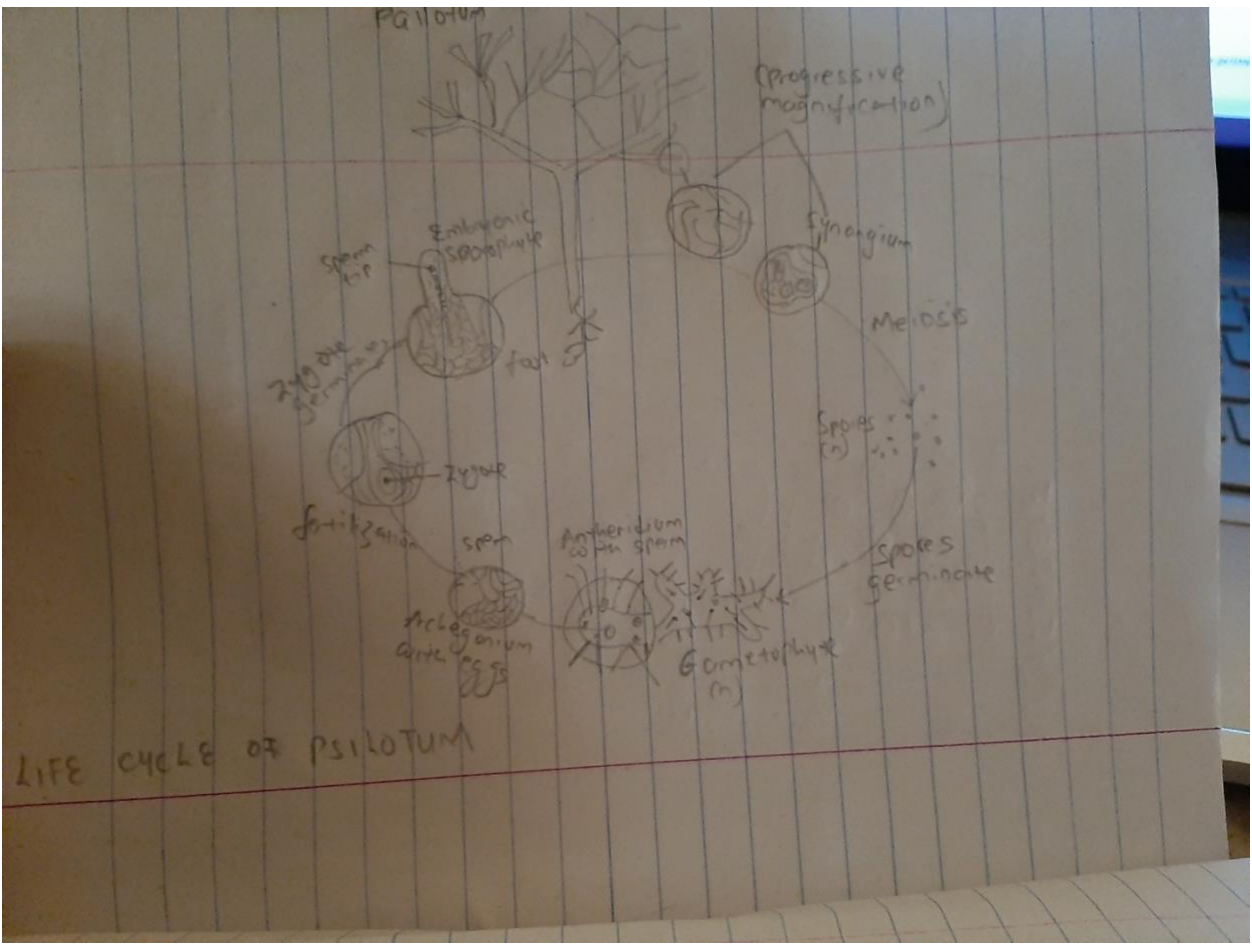 Psilotum
(progressive
magnification)
Synangium
Meiosis
Spores
(n)
Spores
germinate
Gametophyte
(n)
Antheridium
with sperm
sperm
Archegonium
with eggs
fertilization
zygote
Zygote
Embryonic
sporophyte
foot
LIFE CYCLE OF PSILOTUM